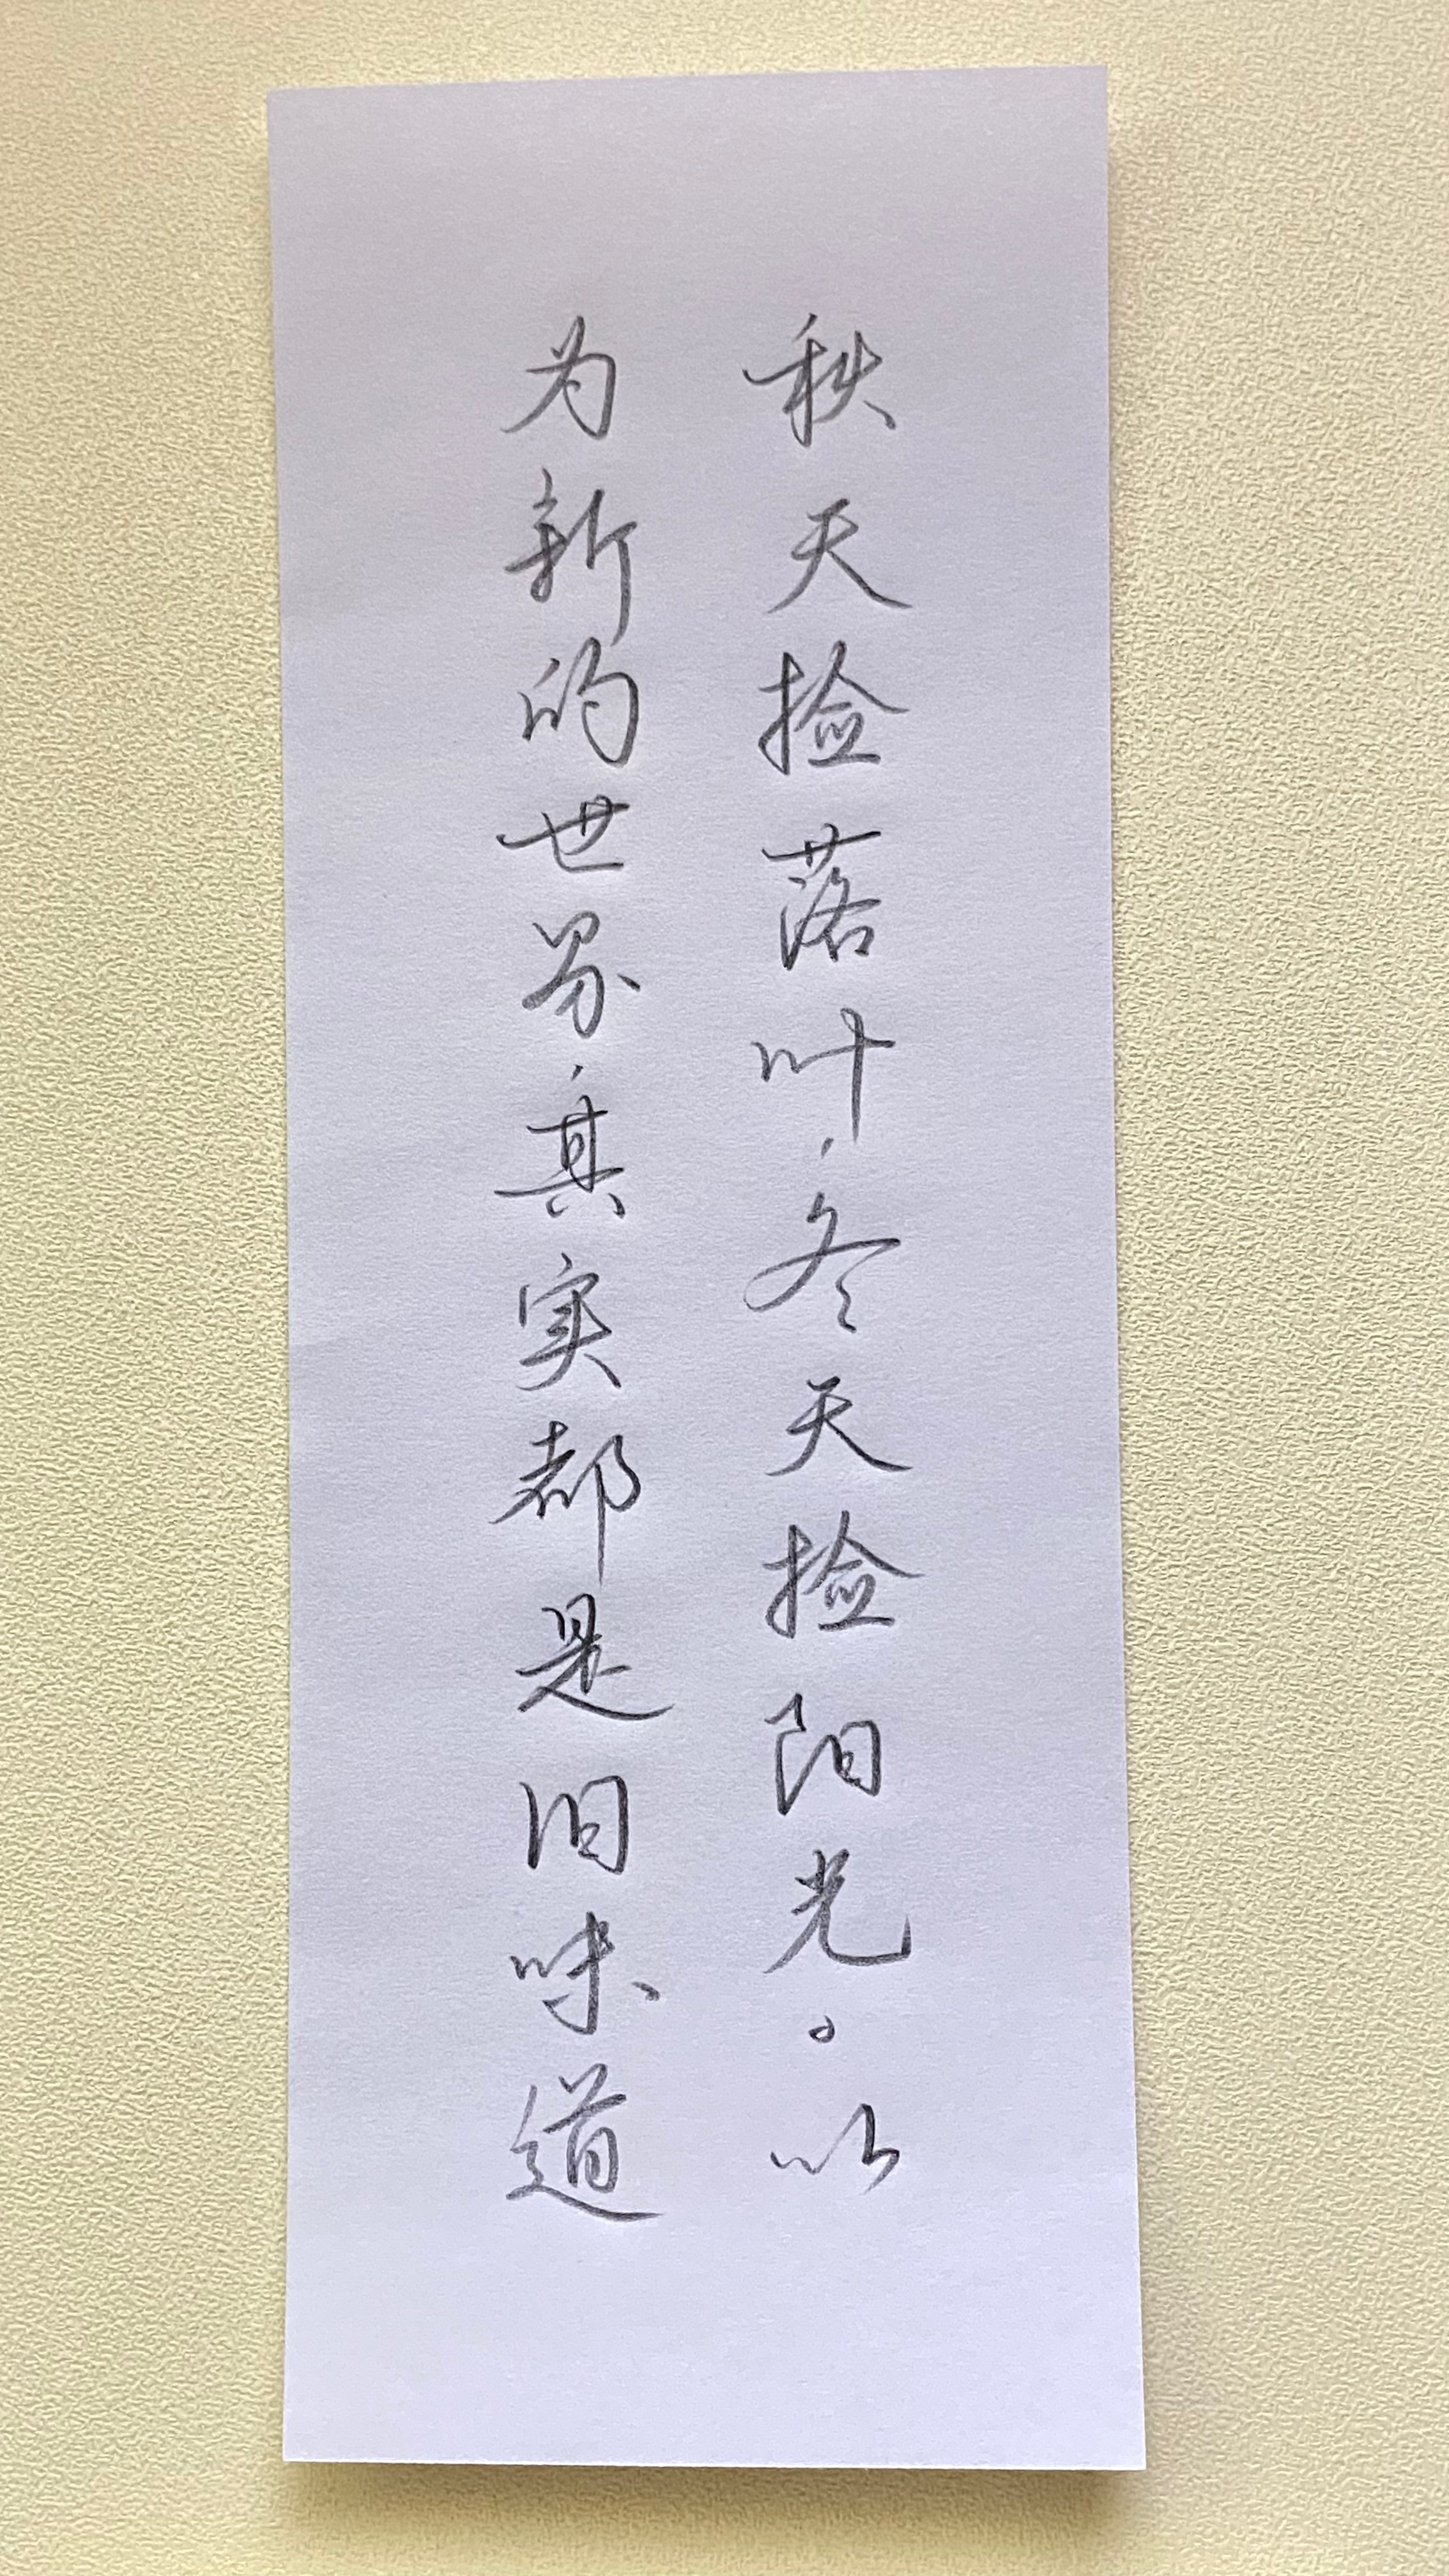 秋天捡落叶，冬天捡阳光。以
为新的世界，其实都是旧味道